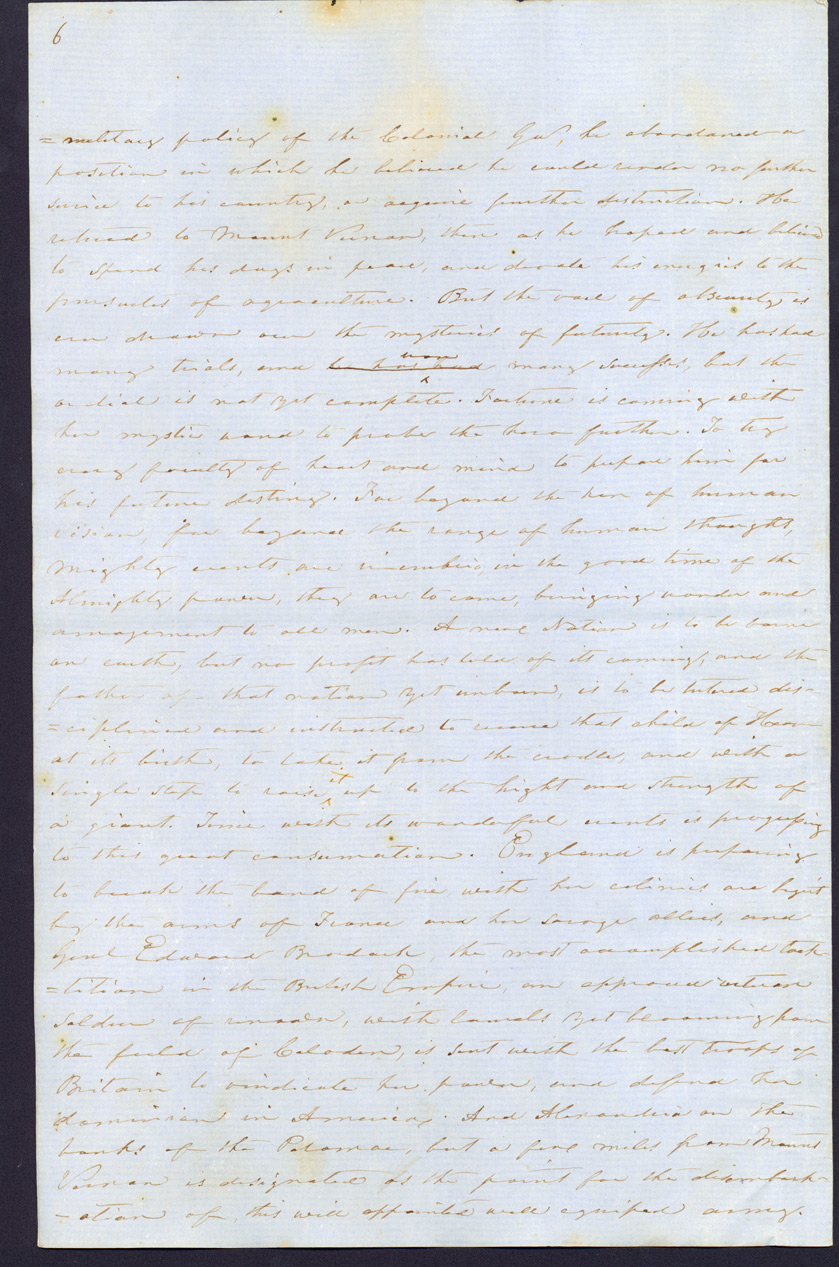 6
=military policy of the Colonial Gov, he abandoned a
position in which he believed he could render no further
service to his country, or acquire further distinction. He
retired to Mount Vernon, there as he hoped and believed
to spend his days in peace, and devote his energies to the
pursuits of agriculture. But the vail of obscurity is
ever drawn over the mysteries of futurity. He has had
many trials, and he has had won many successes, but the
ordial is not yet complete. Fortune is coming with
her mystic wand to probe the hero further. To try
every faculty of heart and mind to prepare him for
his future destiny. Far beyond the ken of human
vision, far beyond the range of human thought,
mighty events are in embrio, in the good time of the
Almighty power, they are to come, bringing wonder and
amazement to all men. A new Nation is to be borne
on earth, but no profit has told of its coming, and the
father of that nation yet unborn, is to be tutored dis-
=ciplined and instructed to receive that child of Heaven
at its birth, to take it from the cradle, and with a
single step to raise it up to the hight and strength of
a giant. Time with its wonderful events is progressing
to this great consumation. England is preparing
to break the band of fire, with her colinies are begirt
by the arms of France and her savage allies, and
Genl Edward Bradock, the most accomplished tack-
=tition in the British Empire, an approved veteran
soldier of renown, with laurels yet blooming from
the field of Coloden, is sent with the best troops of
Britain to vindicate her power, and defend her
dominion in America. And Alexandria on the
banks of the Potomac, but a few miles from Mount
Vernon is designated as the point for the disembark-
=ation of this well appointed well equiped army.